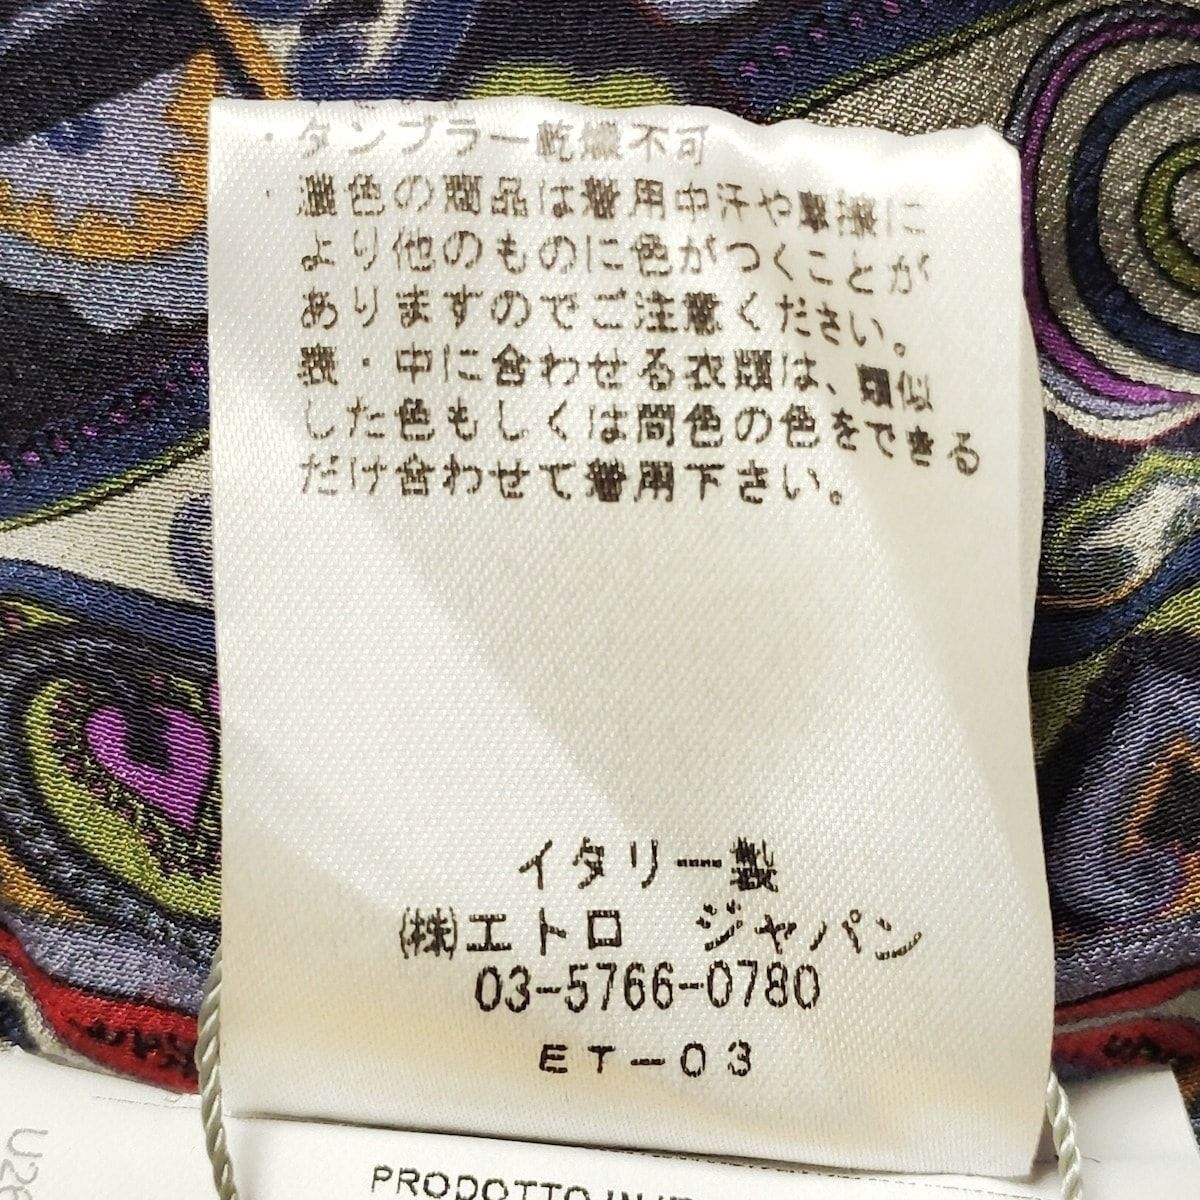 ・タンブラー乾燥不可
・濃色の商品は着用中汗や摩擦に
より他のものに色がつくことが
ありますのでご注意ください。
表・中に合わせる衣類は、類似
した色もしくは同色の色をできる
だけ合わせて着用下さい。
イタリー製
(株)エトロ　ジャパン
03-5766-0780
ET-03
PRODOTTO IN